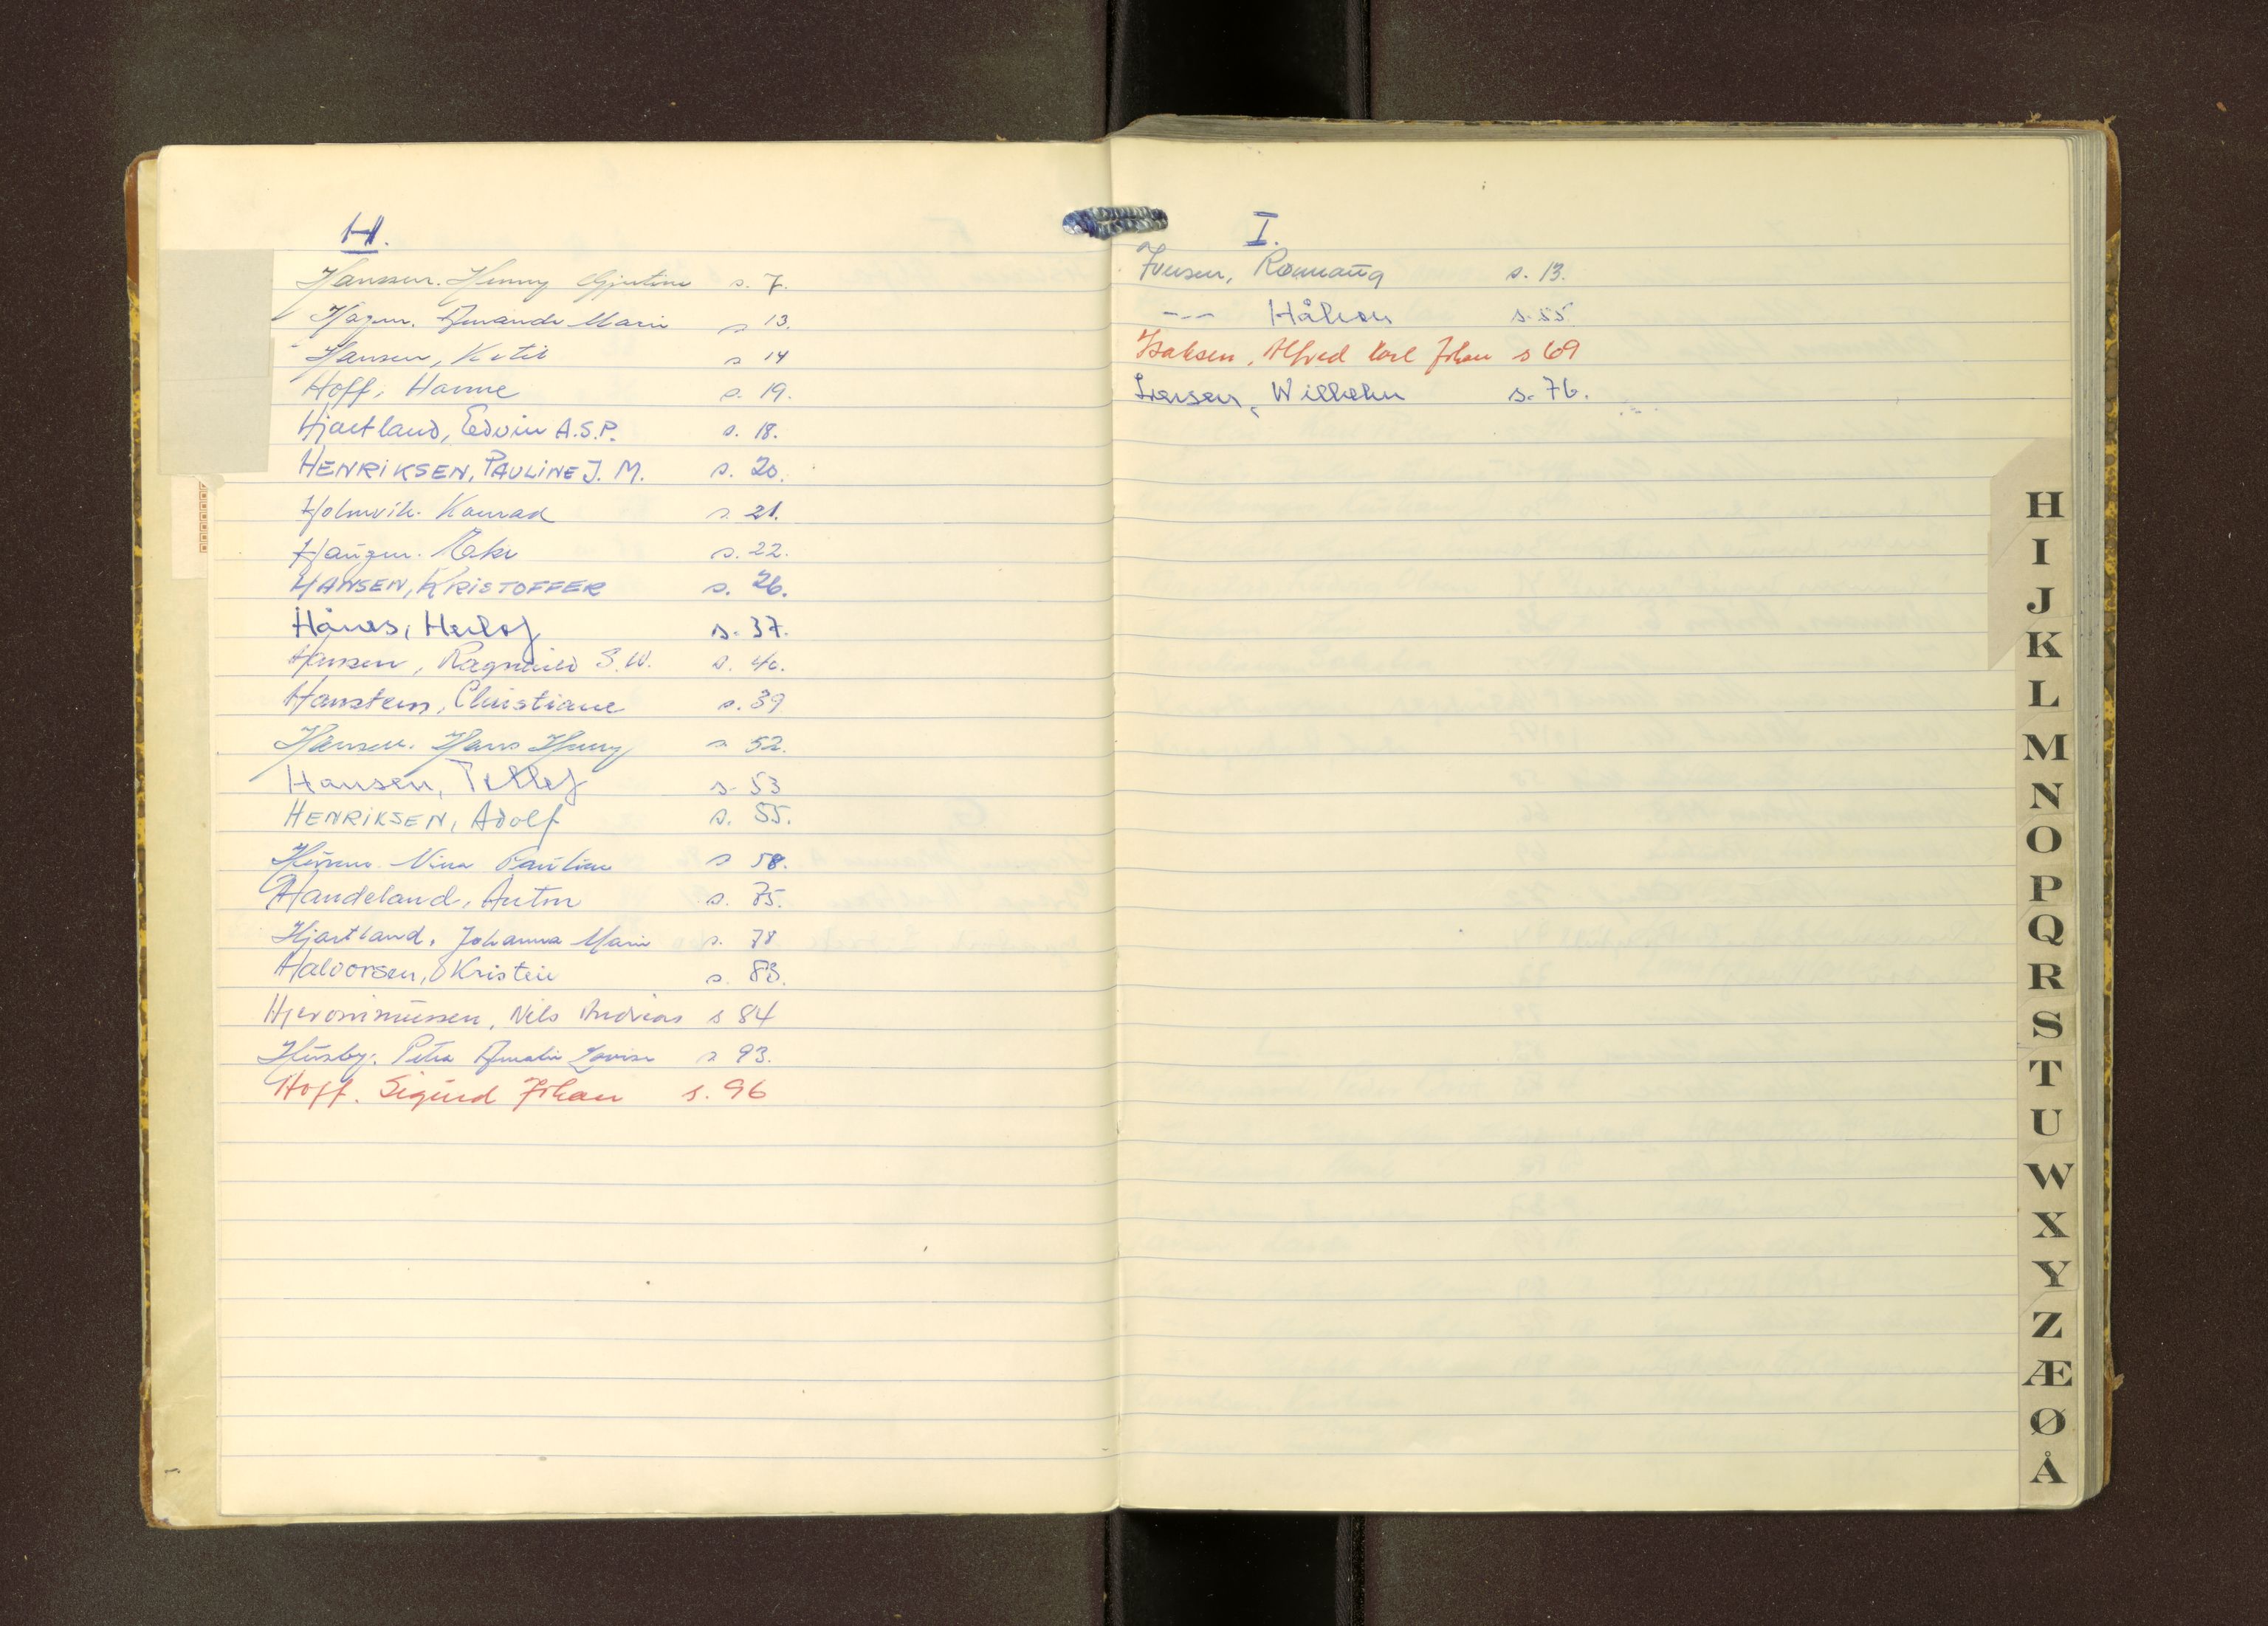 H.
Hanssen. Henny s. 7.
Hagen. Amanda Marie s 13.
Hansen, Ketil s 14
Hoff, Hanne s. 19.
Hjartland, Edvin A.S.P. s. 18.
HENRIKSEN, PAULINE J. M. s. 20.
Holmvik. Konrad s. 21.
Haugen. s. 22.
HANSEN, KRISTOFFER s. 26.
Hånes, Herlof s. 37.
Hansen, Ragnhild S. W. s. 40.
Hanstein, Christiane s. 39
Hansen. Hans Henry s 52.
Hansen, Tellef s. 53
HENRIKSEN, Adolf s. 55.
Nina Pauline s 58.
Handeland, Anton s. 75.
Hjartland, Johanna Marie s. 78
Halvorsen, Kristen s. 83.
Hjeronimussen, Nils Andreas s 84
Husby. Petra Amalie Lovise s 93.
Hoff. Sigurd Johan s. 96
I.
Iversen, s. 13.
--- Håkon s. 55
Isaksen, Alfred Karl Johan s 69
Iversen, Wilhelm s. 76.
H
I
J
K
L
M
N
O
P
Q
R
S
T
U
W
X
Y
Z
Æ
Ø
Å